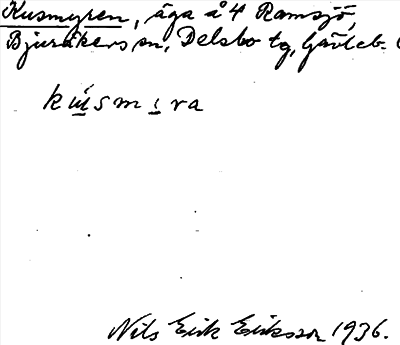 Kusmyren, äga å 4 Ramsjö,
Bjuråkers sn, Delsbo tg, Gävleb.
kusmıra
Nils Erik Eriksson 1936.